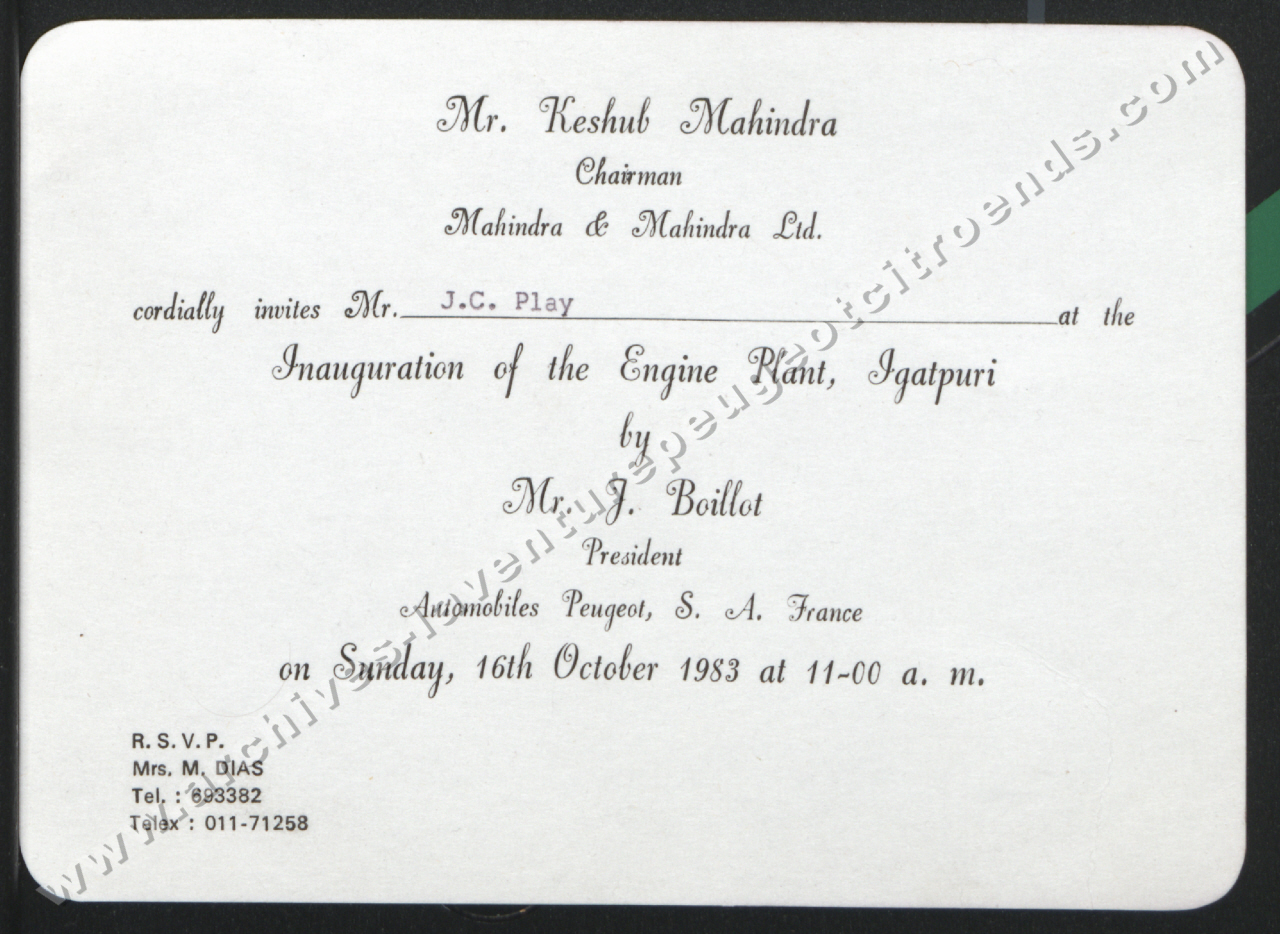 Mr. Keshub Mahindra
Chairman
Mahindra & Mahindra Ltd.
cordially invites Mr. J.C. Play at the
Inauguration of the Engine Plant, Igatpuri
by
Mr. J. Boillot
President
Automobiles Peugeot, S. A. France
on Sunday, 16th October 1983 at 11-00 a. m.
R. S. V. P.
Mrs. M. DIAS
Tel. : 693382
Telex : 011-71258
www.archives-laventurepeugeotcitroends.com